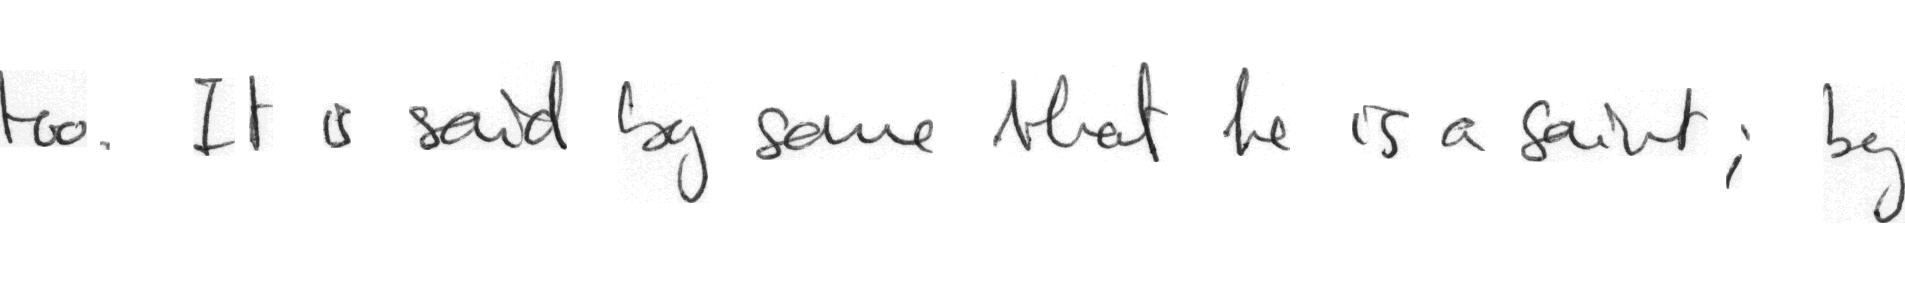 too. It is said by some that he is a saint; by